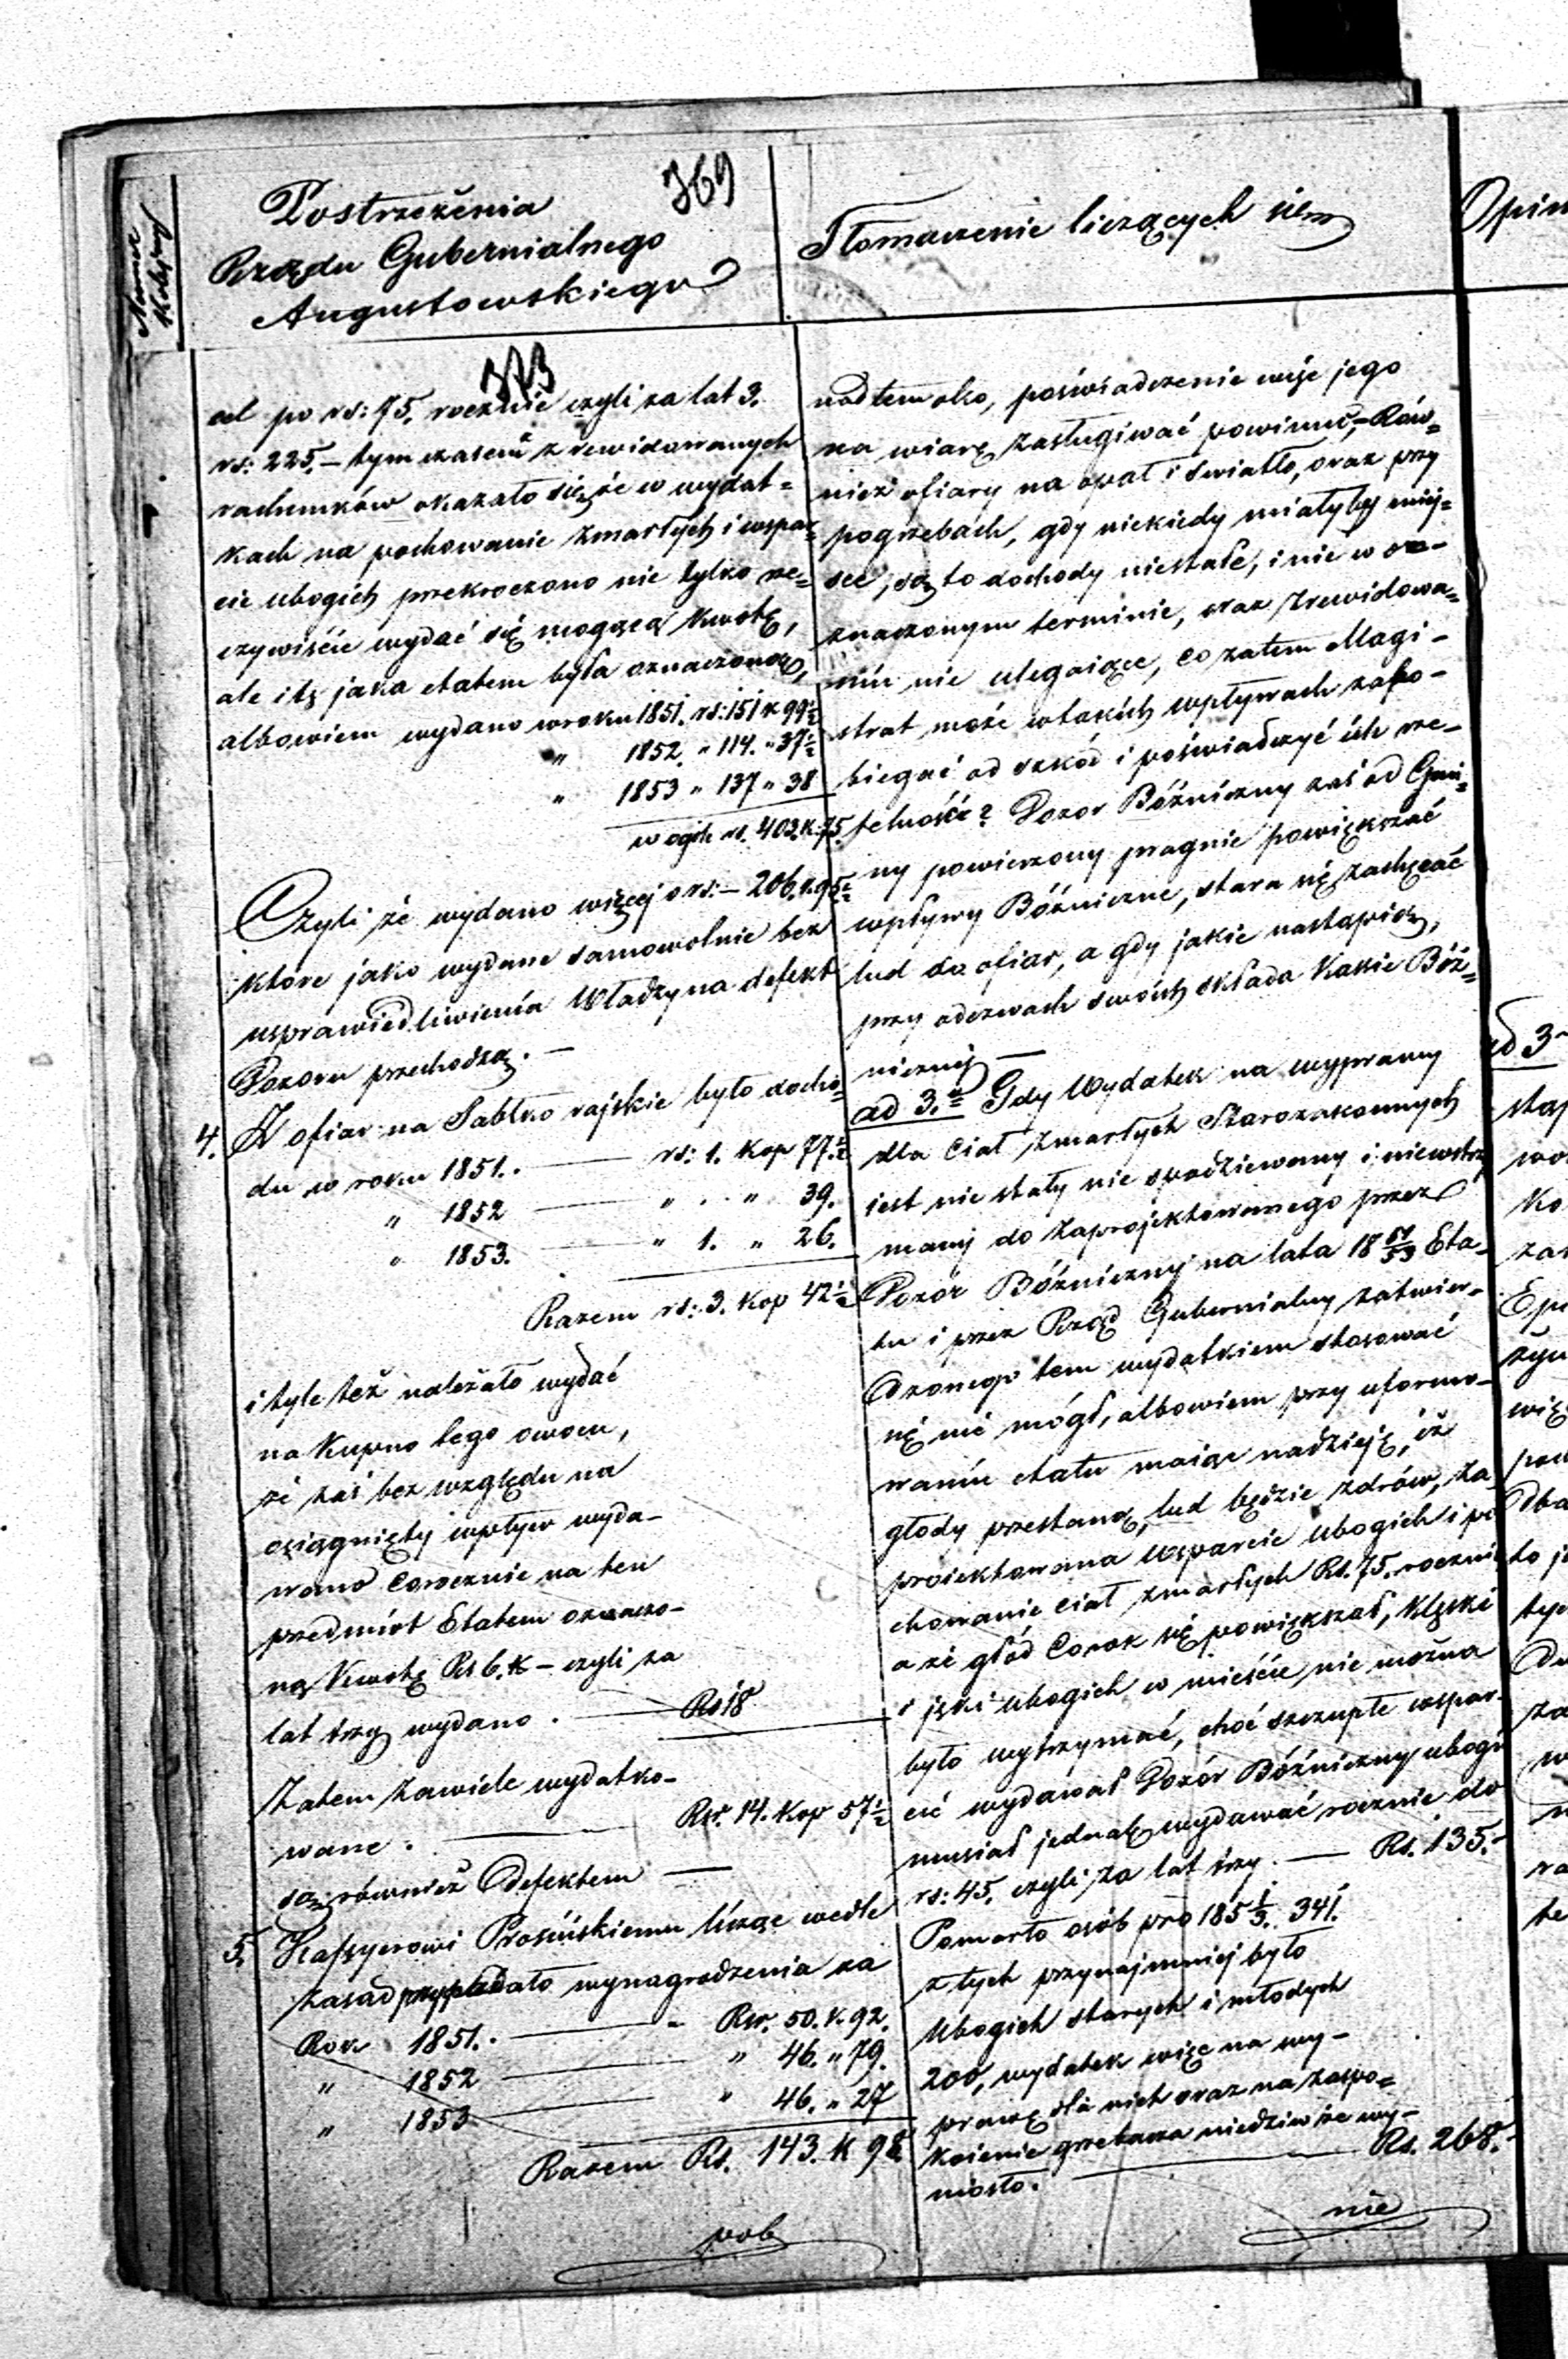 369
Numer
Kolejny
Postrzeżenia
Rządu Gubernialnego
Augustowskiego
373
cel po rs: 75. rocznie czyli za lat 3.
rs: 225. – tym czasem z rewidowanych
rachunków okazało się że w wydat=
kach na pochowanie zmarłych i wspar=
cie ubogich przekroczono nie tylko rze=
czywiście wydać się mogącą kwotę,
ale i tę jaka etatem była oznaczona,
albowiem wydano w roku 1851. rs: 151 k 99½
" 1852. " 114. " 37½
" 1853 " 137 " 38
w ogóle rs. 403 K. 75.
Czyli że wydano więcej o rs: – 206. k. 95½
które jako wydane samowolnie bez
usprawiedliwienia Władzy na defekt
Dozoru przechodzą. –
4. Z ofiar na Jabłko rajskie było docho=
du w roku 1851. . — rs: 1. Kop 77.½
" 1852 — " . " 39.
" 1853. — " 1. " 26.
Razem rs: 3. Kop 42½
i tyle też należało wydać
na Kupno tego owocu,
że zaś bez względu na
osiągnięty wpływ wyda–
wano corocznie na ten
przedmiot Etatem oznaczo–
ną Kwotę Rs 6. k – czyli za
lat trzy wydano . — Rs 18
Zatem zawiele wydatko–
wane . — Rsr. 14. Kop 57½
są również Defektem —
5. Kassyerowi Prosińskiemu licząc wedle
zasad przypadało wynagrodzenia za
Rok 1851. . — " Rsr. 50. k. 92.
" 1852 — " 46. " 79.
" 1853 — " 46. " 27
Razem Rs. 143. K 98
pob
Tłomaczenie liczących się
nad tem oko, poświadczenie więc jego
na wiarę zasługiwać powinno, – Rów=
nież ofiary na opał i światło, oraz przy
pogrzebach, gdy niekiedy miałyby miej=
sce, są to dochody niestałe, i nie w oz–
znaczonym terminie, oraz zrewidowa=
niu nie ulegaiące, co zatem Magi–
strat może w takich wpływach zapo–
biegać od szkód i poświadczyć ich rze–
telność? Dozor Bóżniczny zaś od Gmi=
ny powierzony pragnie powiększać
wpływy Bóżniczne, stara się zachęcać
lud do ofiar, a gdy jakie nastąpią,
przy odezwach swoich składa Kassie Bóż=
nicznej —
ad 3. Gdy Wydatek na wyprawy
dla Ciał Zmarłych Starozakonnych
iest nie stały nie spodziewany i niewstrzy
many do zaprojektowanego przez
Dozór Bóżniczny na lata 18 51/53 Eta–
tu i przez Rząd Gubernialny zatwier–
dzonego tem wydatkiem stosować
się nie mógł, albowiem przy uformo–
waniu etatu maiąc nadzieję, iż
głody przestaną, lud będzie zdrów, za
proiektowana wsparcie ubogich i po
chowanie ciał zmarłych Rs. 75. rocznie
a że głód Corok się powiększał, klęski
i jęki ubogich w mieście nie można
było wytrzymać, choć szczupłe wspar–
cie wydawał Dozór Bóżniczny ubogim
musiał jednak wydawać rocznie do
rs: 45. czyli za lat trzy. — Rs. 135.–
Pomarło osób pro 185 1/3. 341.
z tych przynajmniej było
Ubogich starych i młodych
200, wydatek więc na wy–
prawę dla nich oraz na zaspo=
koienie grzebacza wy–
niosło. — Rs. 268.–
nie
Opin
ad 3